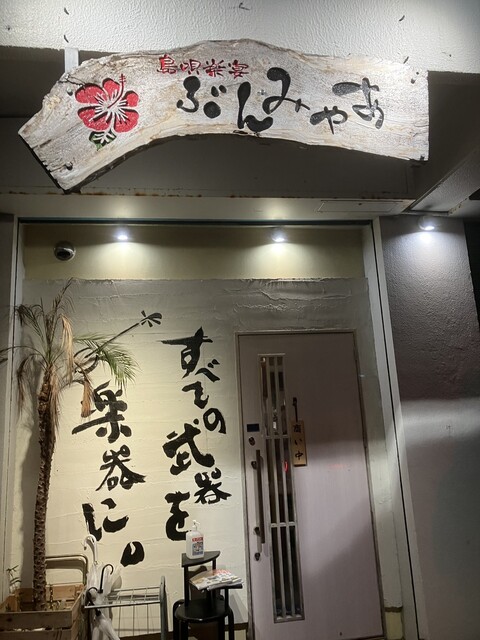 島唄楽宴
ぶんみゃあ
すべての
武器を
楽器に。